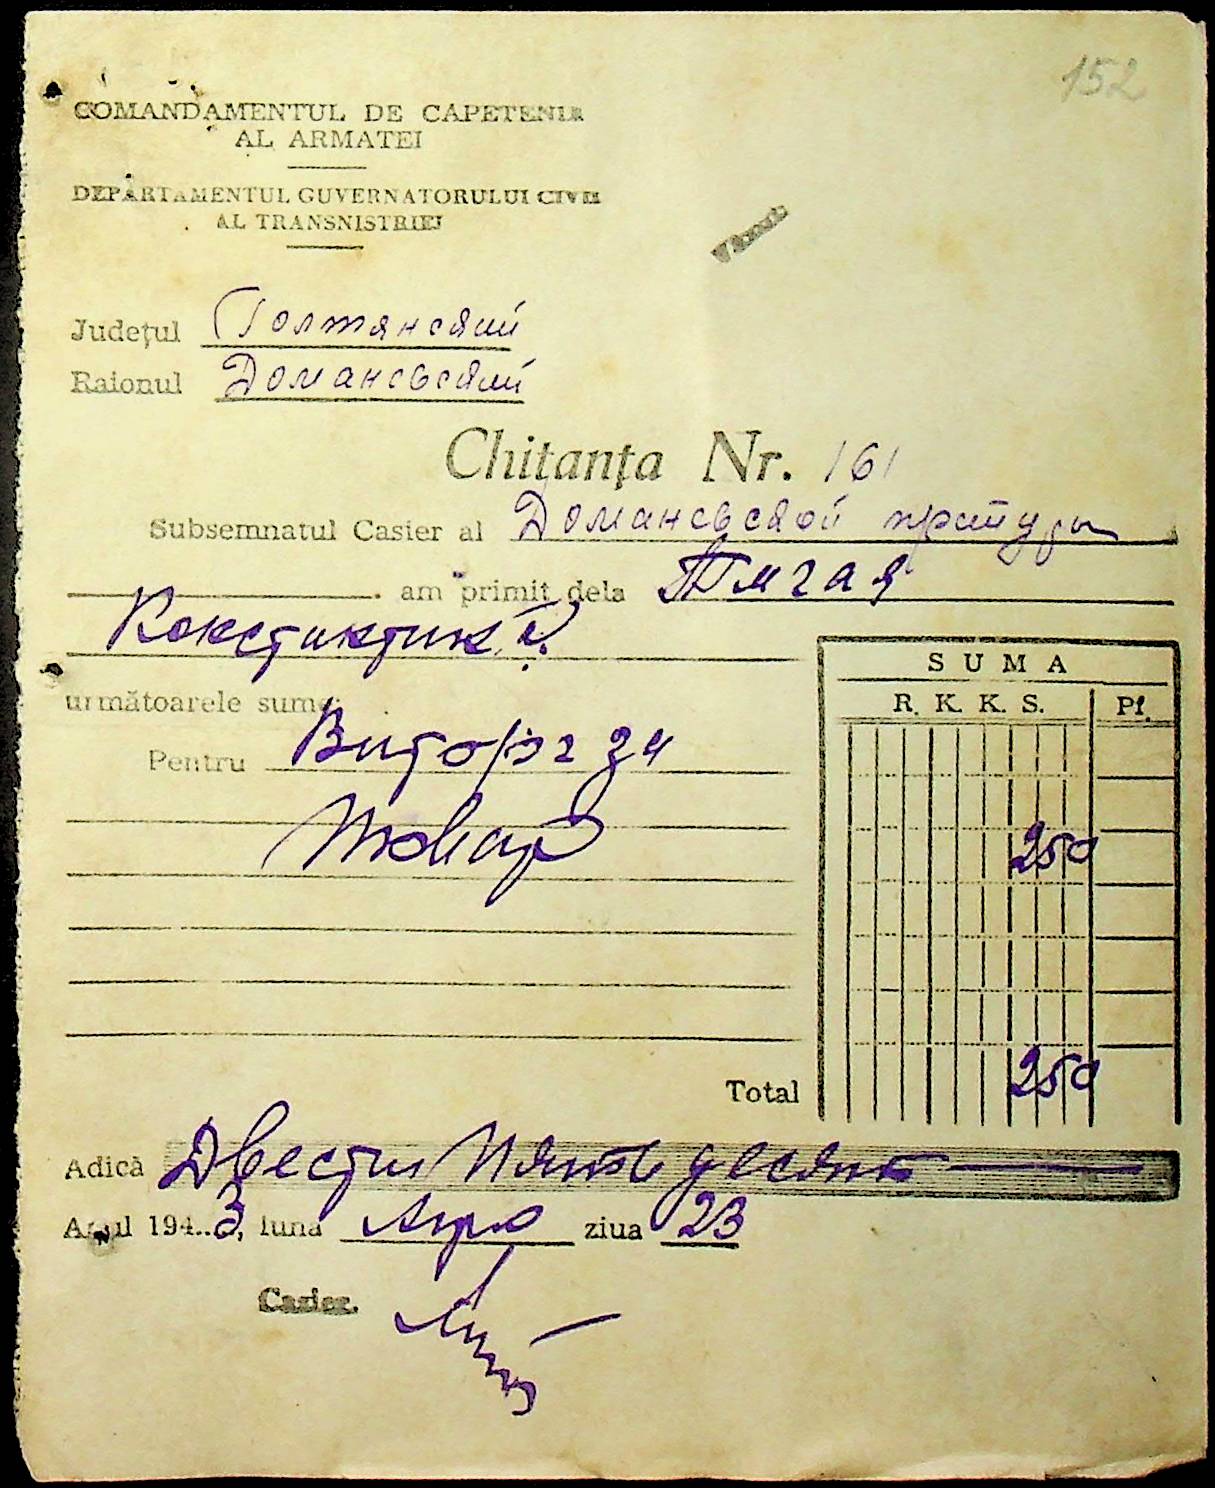 152
COMANDAMENTUL DE CAPETENIE
AL ARMATEI
DEPARTAMENTUL GUVERNATORULUI CIVIL
AL TRANSNISTRIEI
Județul Голтянский
Raionul Доманевский
Chitanța Nr. 161
Subsemnatul Casier al Доманевской претуры
am primit dela
următoarele sume:
SUMA
R. K. K. S. Pf.
Pentru Виторг за
товар
250
Total 250
Adică Двести Пять десят
Anul 194..3, luna Апрл ziua 23
Casier.